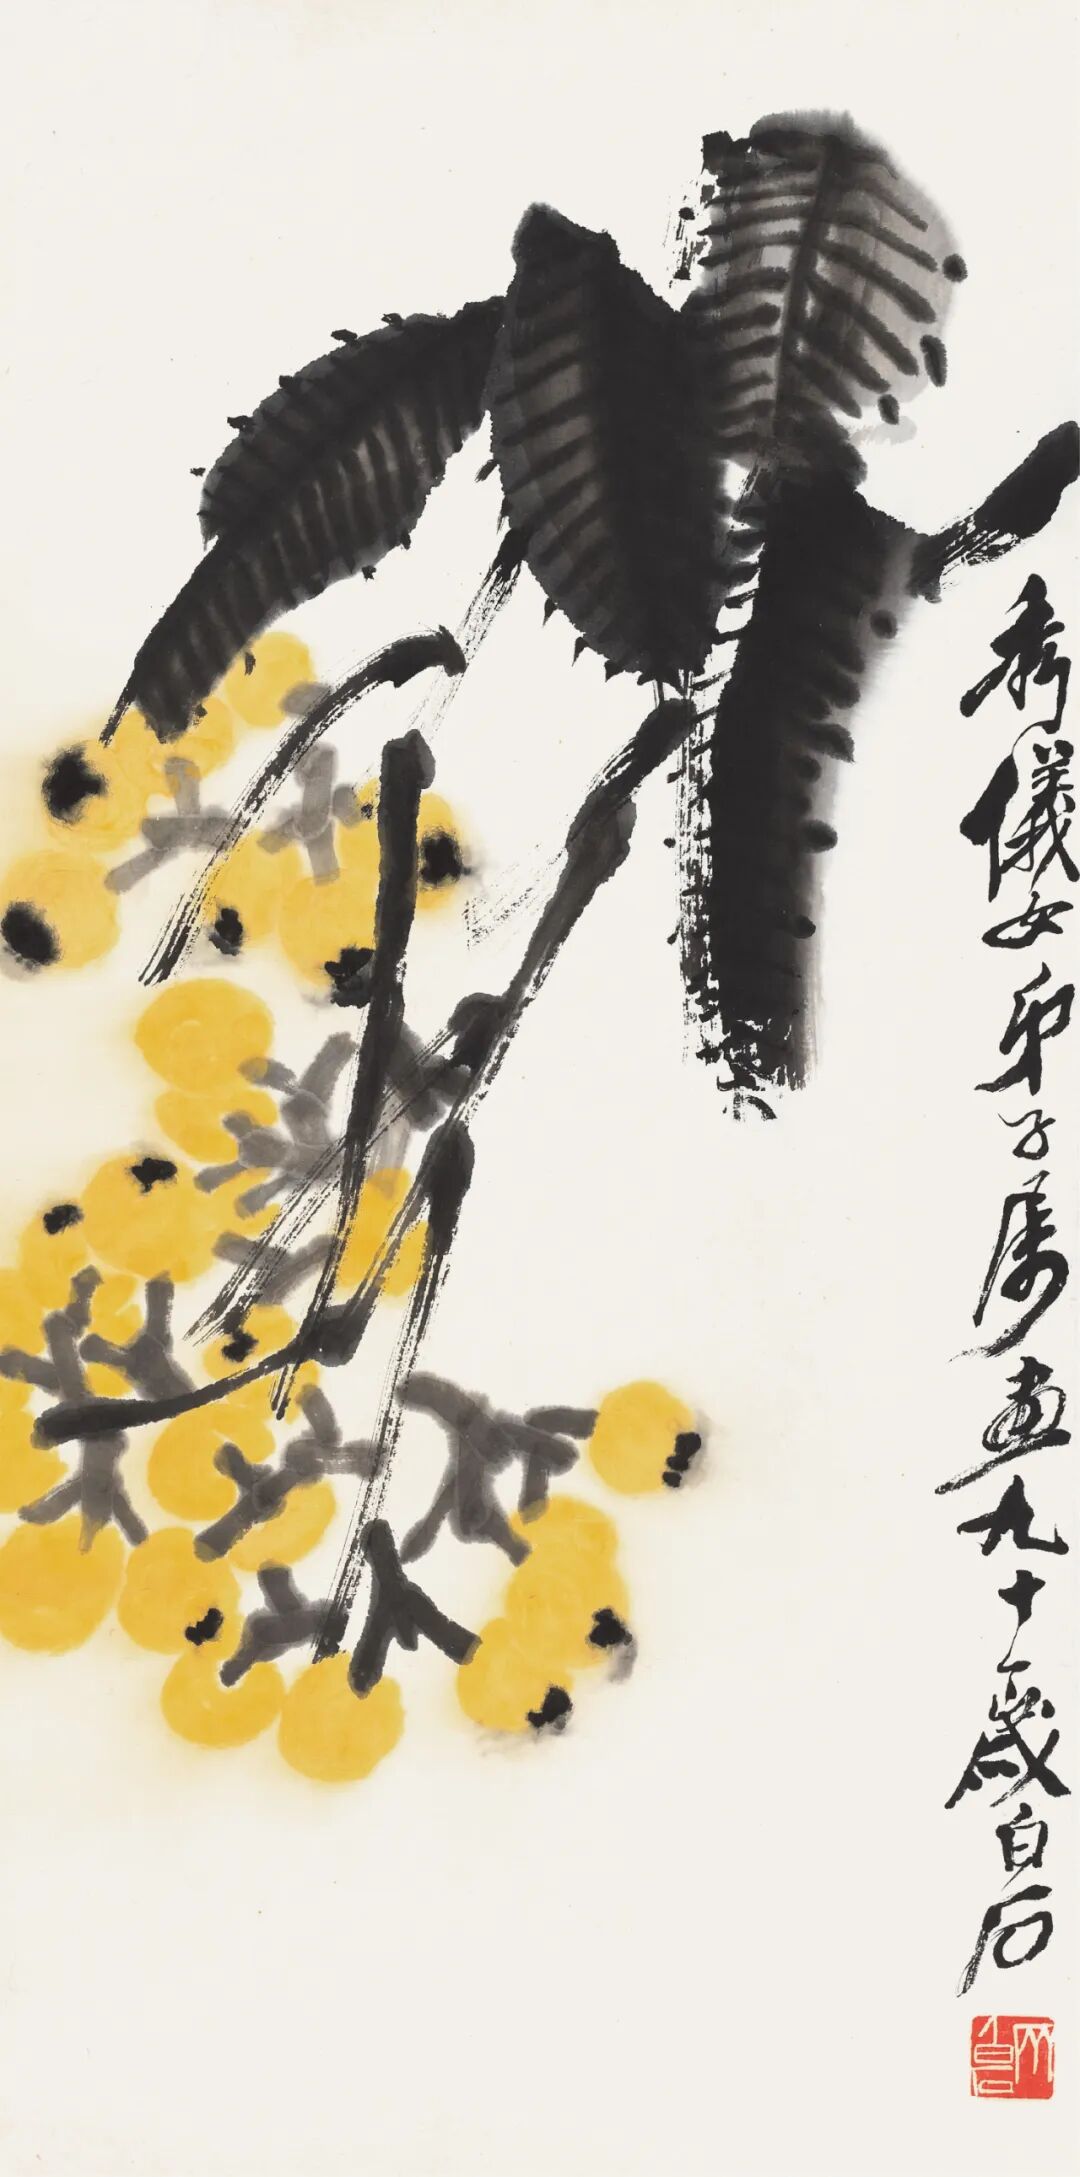 秀儀女弟子屬畫九十歲白石
白石